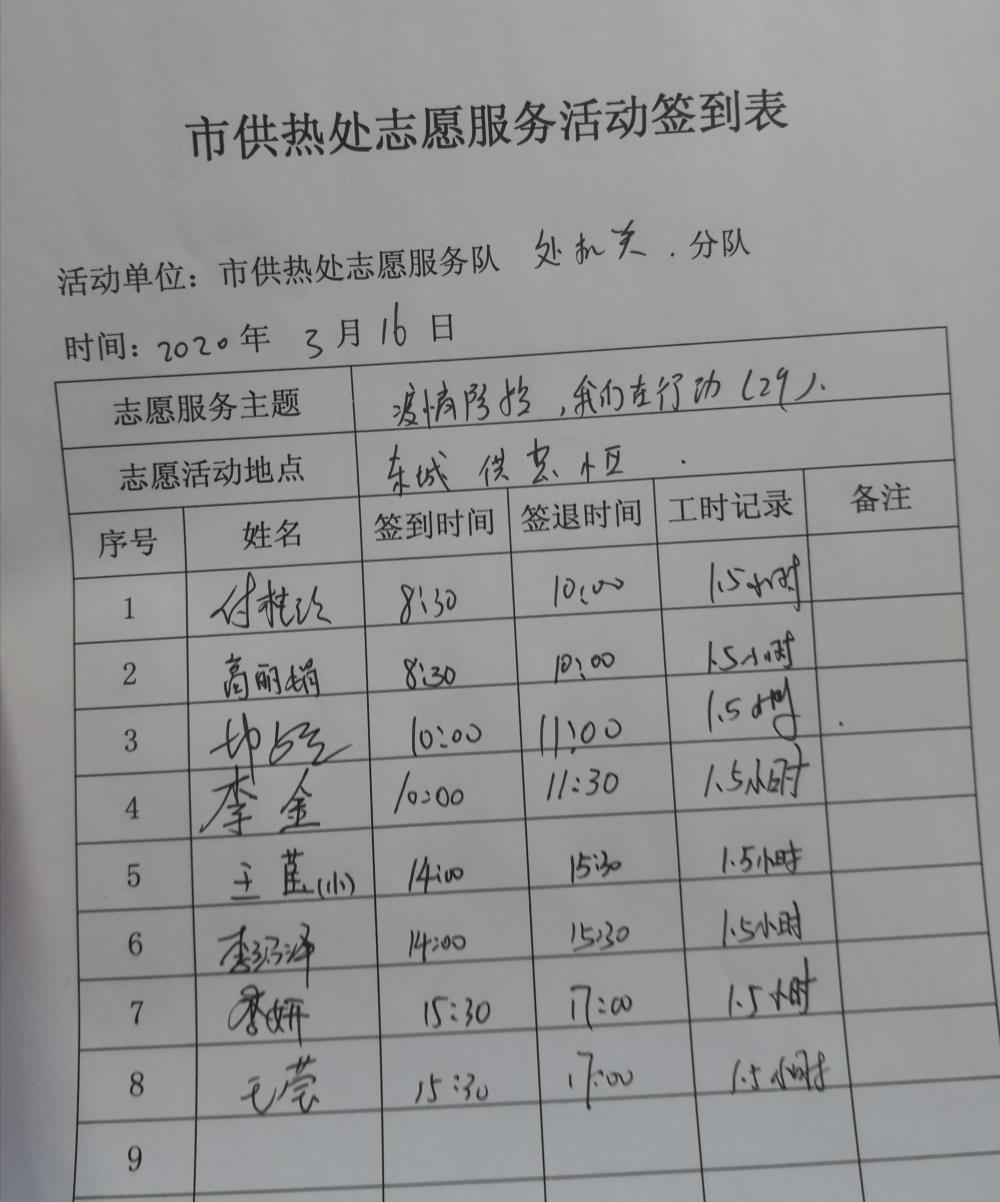 市供热处志愿服务活动签到表
活动单位：市供热处志愿服务队 处机关 . 分队
时间：2020年 3月16日
志愿服务主题 疫情防控，我们在行动（29）.
志愿活动地点 东城 供热小区 .
序号 姓名 签到时间 签退时间 工时记录 备注
1 8:30 10:00 1.5小时
2 高丽娟 8:30 10:00 1.5小时
3 10:00 11:00 1.5小时
4 李金 10:00 11:30 1.5小时
5 王(小) 14:00 15:30 1.5小时
6 14:00 15:30 1.5小时
7 李妍 15:30 17:00 1.5小时
8 15:30 17:00 1.5小时
9